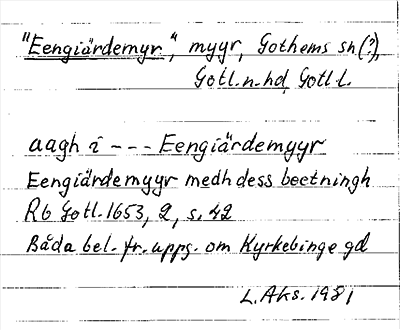 "Eengiärdemyr", myyr, Gothems sn (?),
Gotl. n. hd, Gotl. L.
aagh i --- Eengiärdemyyr
Eengiärdemyyr medh dess beetningh
Rb Gotl. 1653, 2, s. 42
Båda bel. fr. uppg. om Kyrkebinge gd
L. Aks. 1981